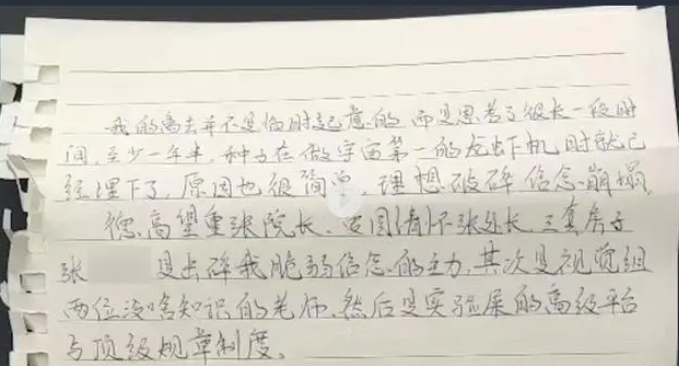 我的离去并不是临时起意的,而是思考了很长一段时
间,至少一年半,种子在做宇宙第一的龙虾机时就已
经埋下了,原因也很简单,理想破碎信念崩塌。
德高望重张院长、爱国情怀张处长、三套房子
张 是击碎我脆弱信念的主力,其次是视觉组
两位没啥知识的老师,然后是实验屎的高级平台
与顶级规章制度。